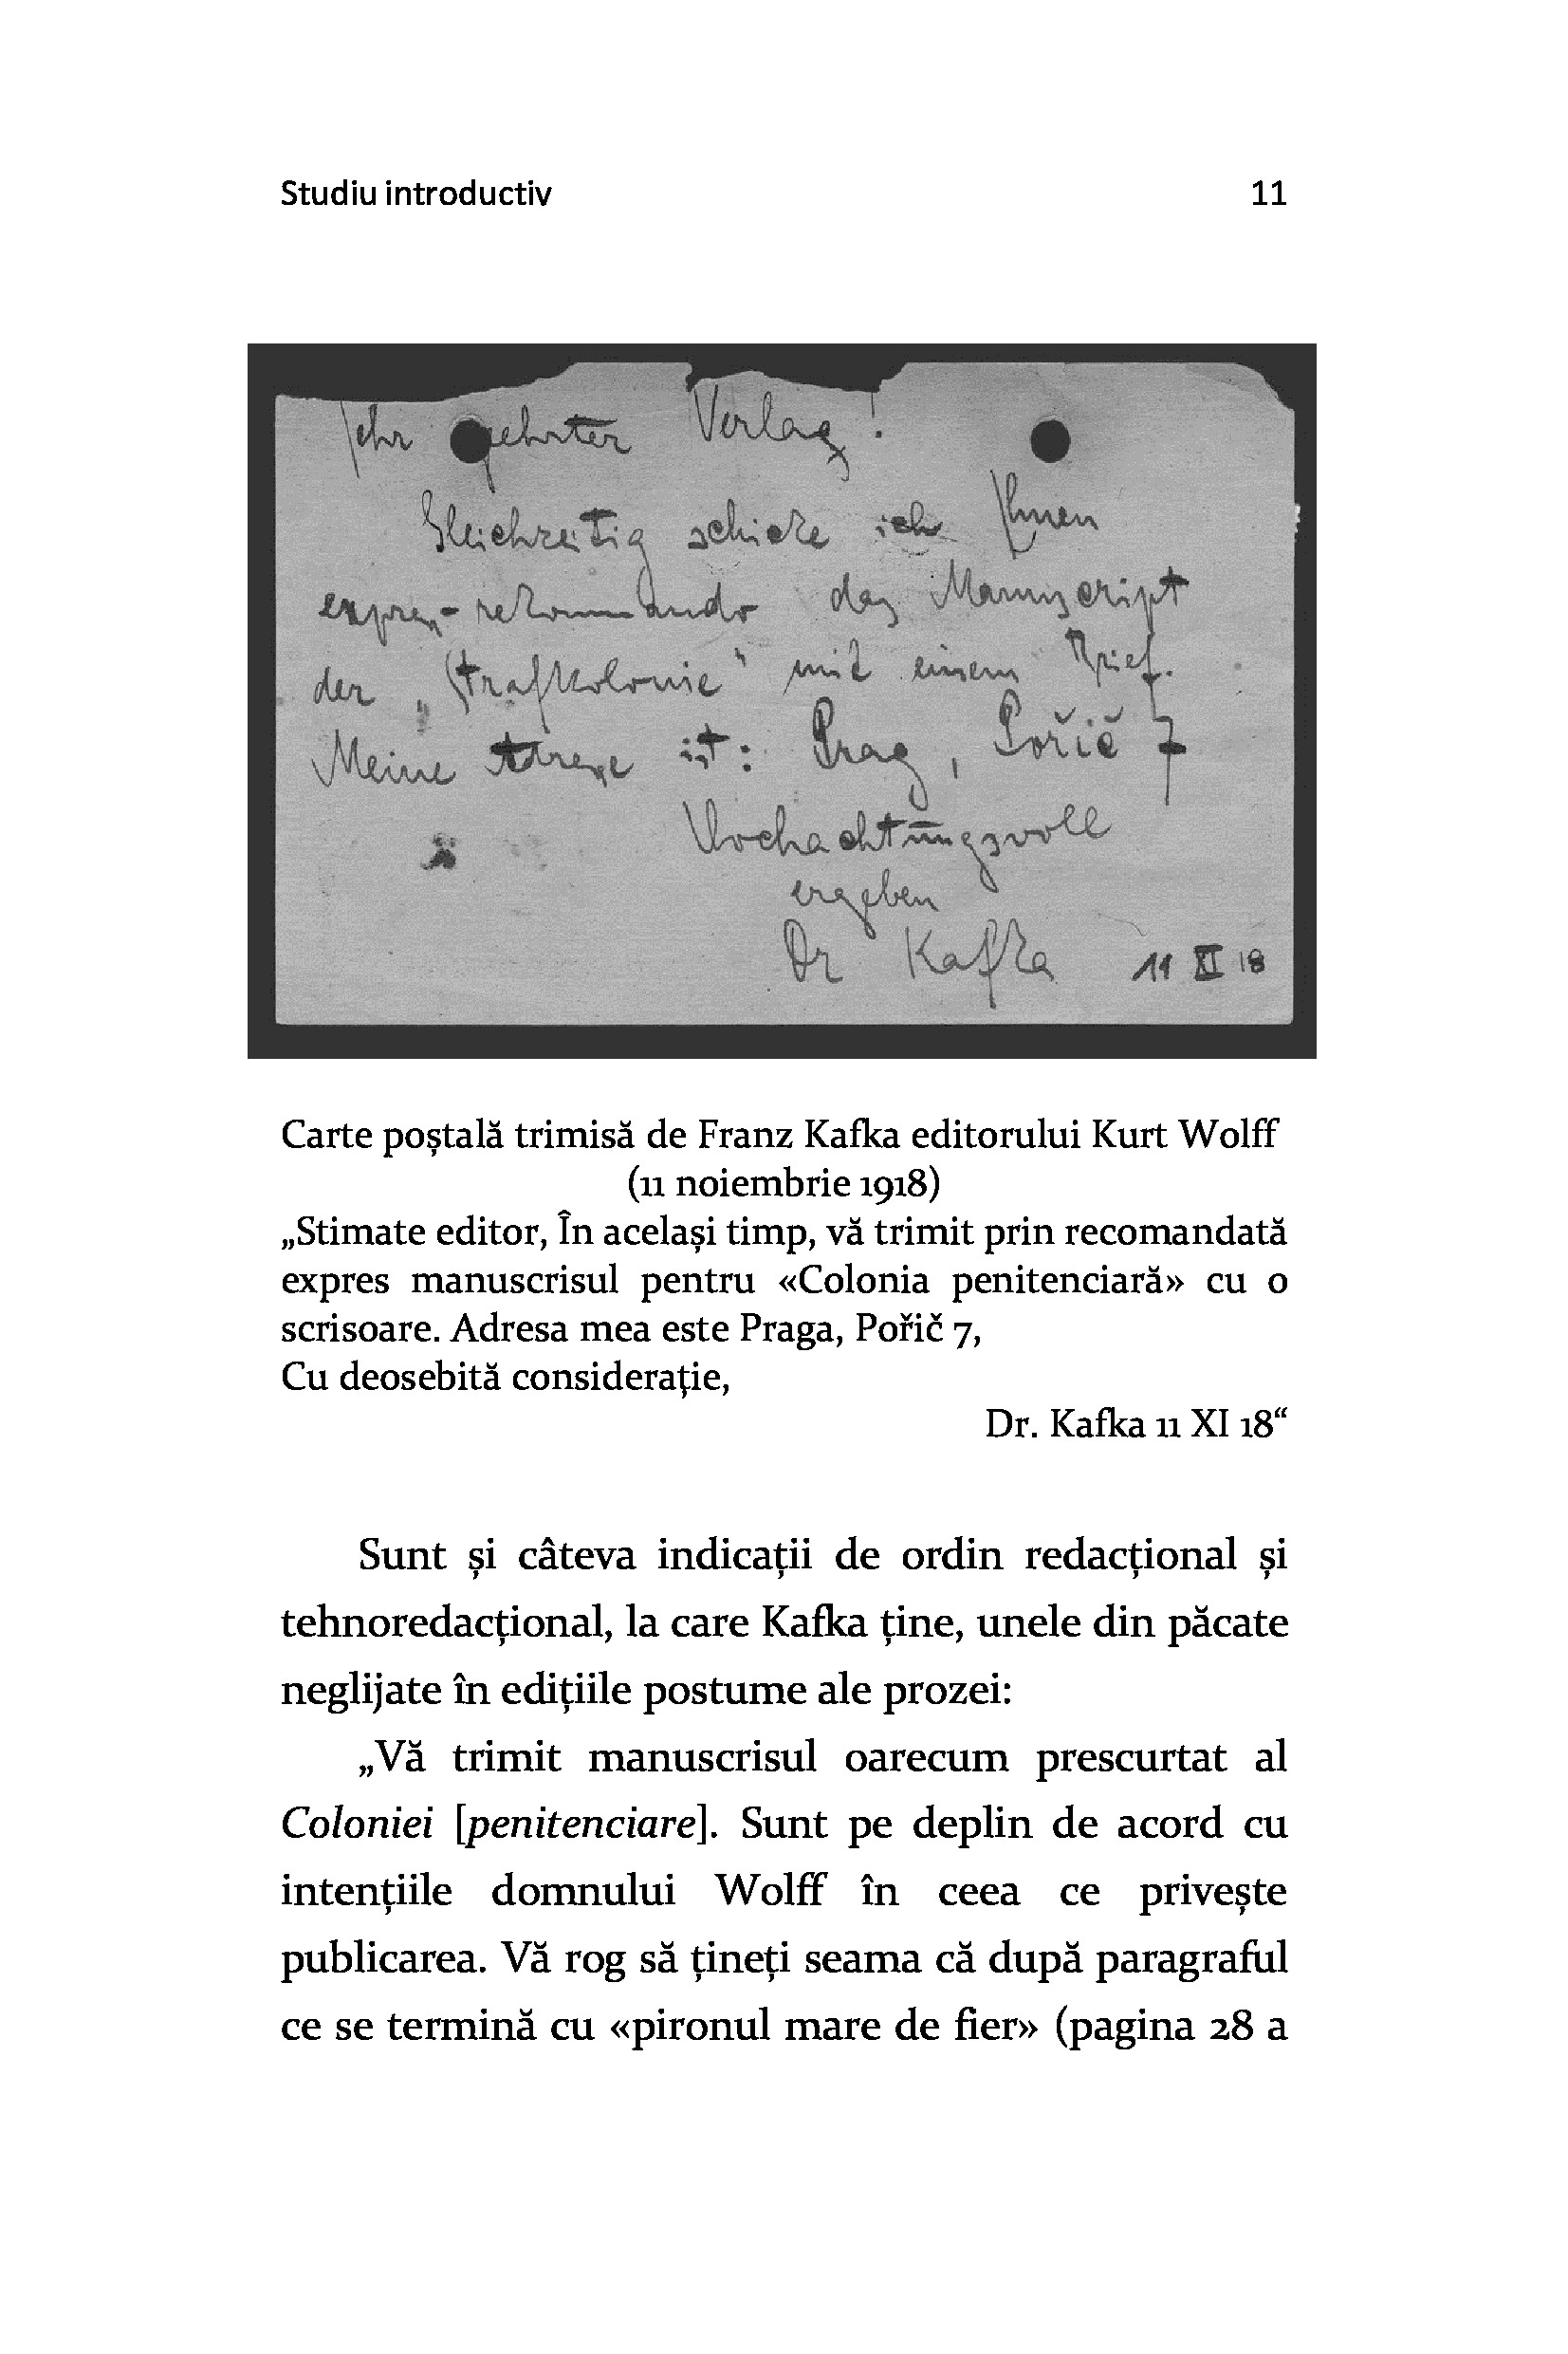 Studiu introductiv 11
Sehr geehrter Verlag!
Gleichzeitig schicke ich Ihnen
express-rekommando das Manuscript
der „Strafkolonie“ mit einem Brief.
Meine Adresse ist: Prag, Pořič 7
Hochachtungsvoll
ergeben
Dr Kafka 11 XI 18
Carte poștală trimisă de Franz Kafka editorului Kurt Wolff
(11 noiembrie 1918)
„Stimate editor, În același timp, vă trimit prin recomandată
expres manuscrisul pentru «Colonia penitenciară» cu o
scrisoare. Adresa mea este Praga, Pořič 7,
Cu deosebită considerație,
Dr. Kafka 11 XI 18“
Sunt și câteva indicații de ordin redacțional și
tehnoredacțional, la care Kafka ține, unele din păcate
neglijate în edițiile postume ale prozei:
„Vă trimit manuscrisul oarecum prescurtat al
Coloniei [penitenciare]. Sunt pe deplin de acord cu
intențiile domnului Wolff în ceea ce privește
publicarea. Vă rog să țineți seama că după paragraful
ce se termină cu «pironul mare de fier» (pagina 28 a